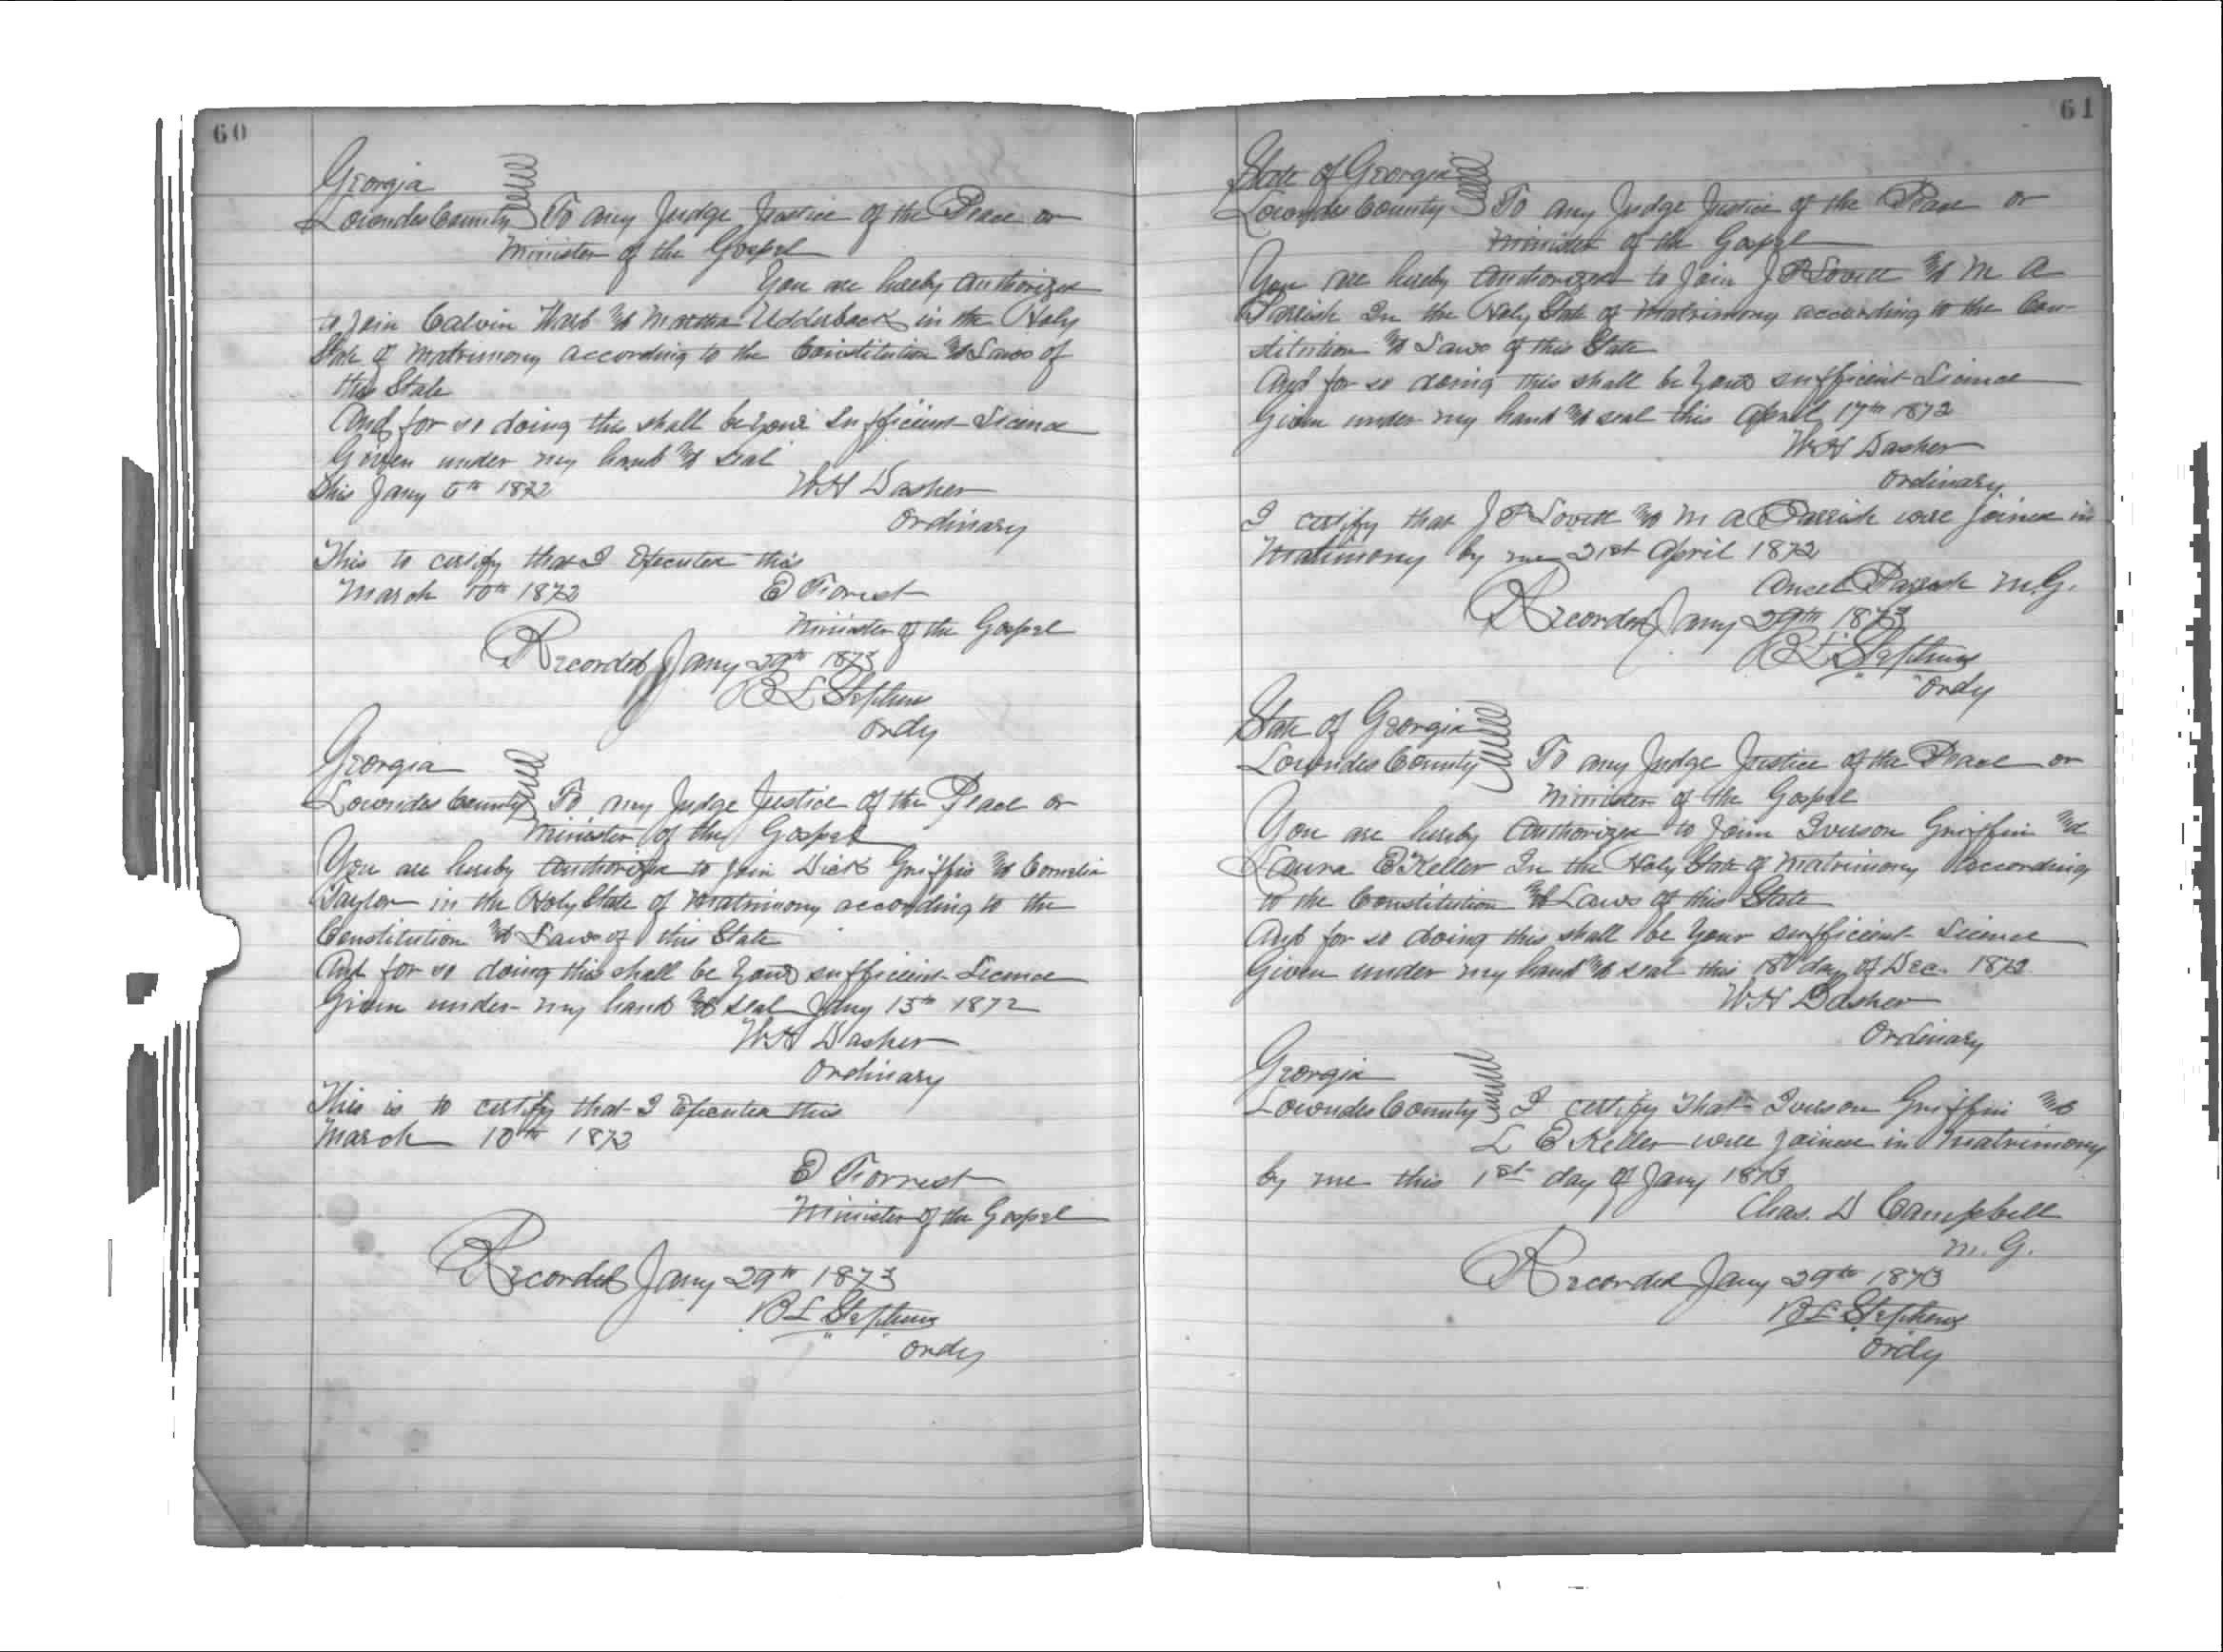 60
Georgia
Lowndes County To any Judge Justice of the Peace or
Minister of the Gospel
You are hereby authorized
to join Calvin Ward & Martha Udderback in the Holy
State of Matrimony according to the Constitution & Laws of
this State
And for so doing this shall be your Sufficient Licence
Given under my hand & seal
this Jany 1872 WH Dasher
Ordinary
This to certify that I Executed this
March 10th 1872 E Forrest
Minister of the Gospel
Recorded Jany 29th 1873
B L Stephens
Ordy
Georgia
Lowndes County To any Judge Justice of the Peace or
Minister of the Gospel
You are hereby authorized to join Dick Griffin & Cornelia
Taylor in the Holy State of Matrimony according to the
Constitution & Laws of this State
And for so doing this shall be your sufficient Licence
Given under my hand & seal Jany 13th 1872
WH Dasher
Ordinary
This is to certify that I Executed this
March 10th 1872
E Forrest
Minister of the Gospel
Recorded Jany 29th 1873
B L Stephens
Ordy
61
State of Georgia
Lowndes County To any Judge Justice of the Peace or
Minister of the Gospel
You are hereby authorized to join J P Lovett & M A
Parrish In the Holy State of Matrimony according to the Con-
stitution & Laws of this State
And for so doing this shall be your sufficient Licence
Given under my hand & seal this April 17th 1872
WH Dasher
Ordinary
I certify that J P Lovett & M A Parrish were joined in
Matrimony by me 21st April 1872
Ancel Parrish M.G.
Recorded Jany 29th 1873
B L Stephens
Ordy
State of Georgia
Lowndes County To any Judge Justice of the Peace or
Minister of the Gospel
You are hereby authorized to Join Iverson Griffin &
Laura E Keller In the Holy State of Matrimony According
to the Constitution & Laws of this State
And for so doing this shall be Your sufficient Licence
Given under my hand & seal this 18th day of Dec. 1872
WH Dasher
Ordinary
Georgia
Lowndes County I certify that Iverson Griffin &
L E Keller were joined in Matrimony
by me this 1st day of Jany 1873
Chas. D Campbell
M. G.
Recorded Jany 29th 1873
B L Stephens
Ordy